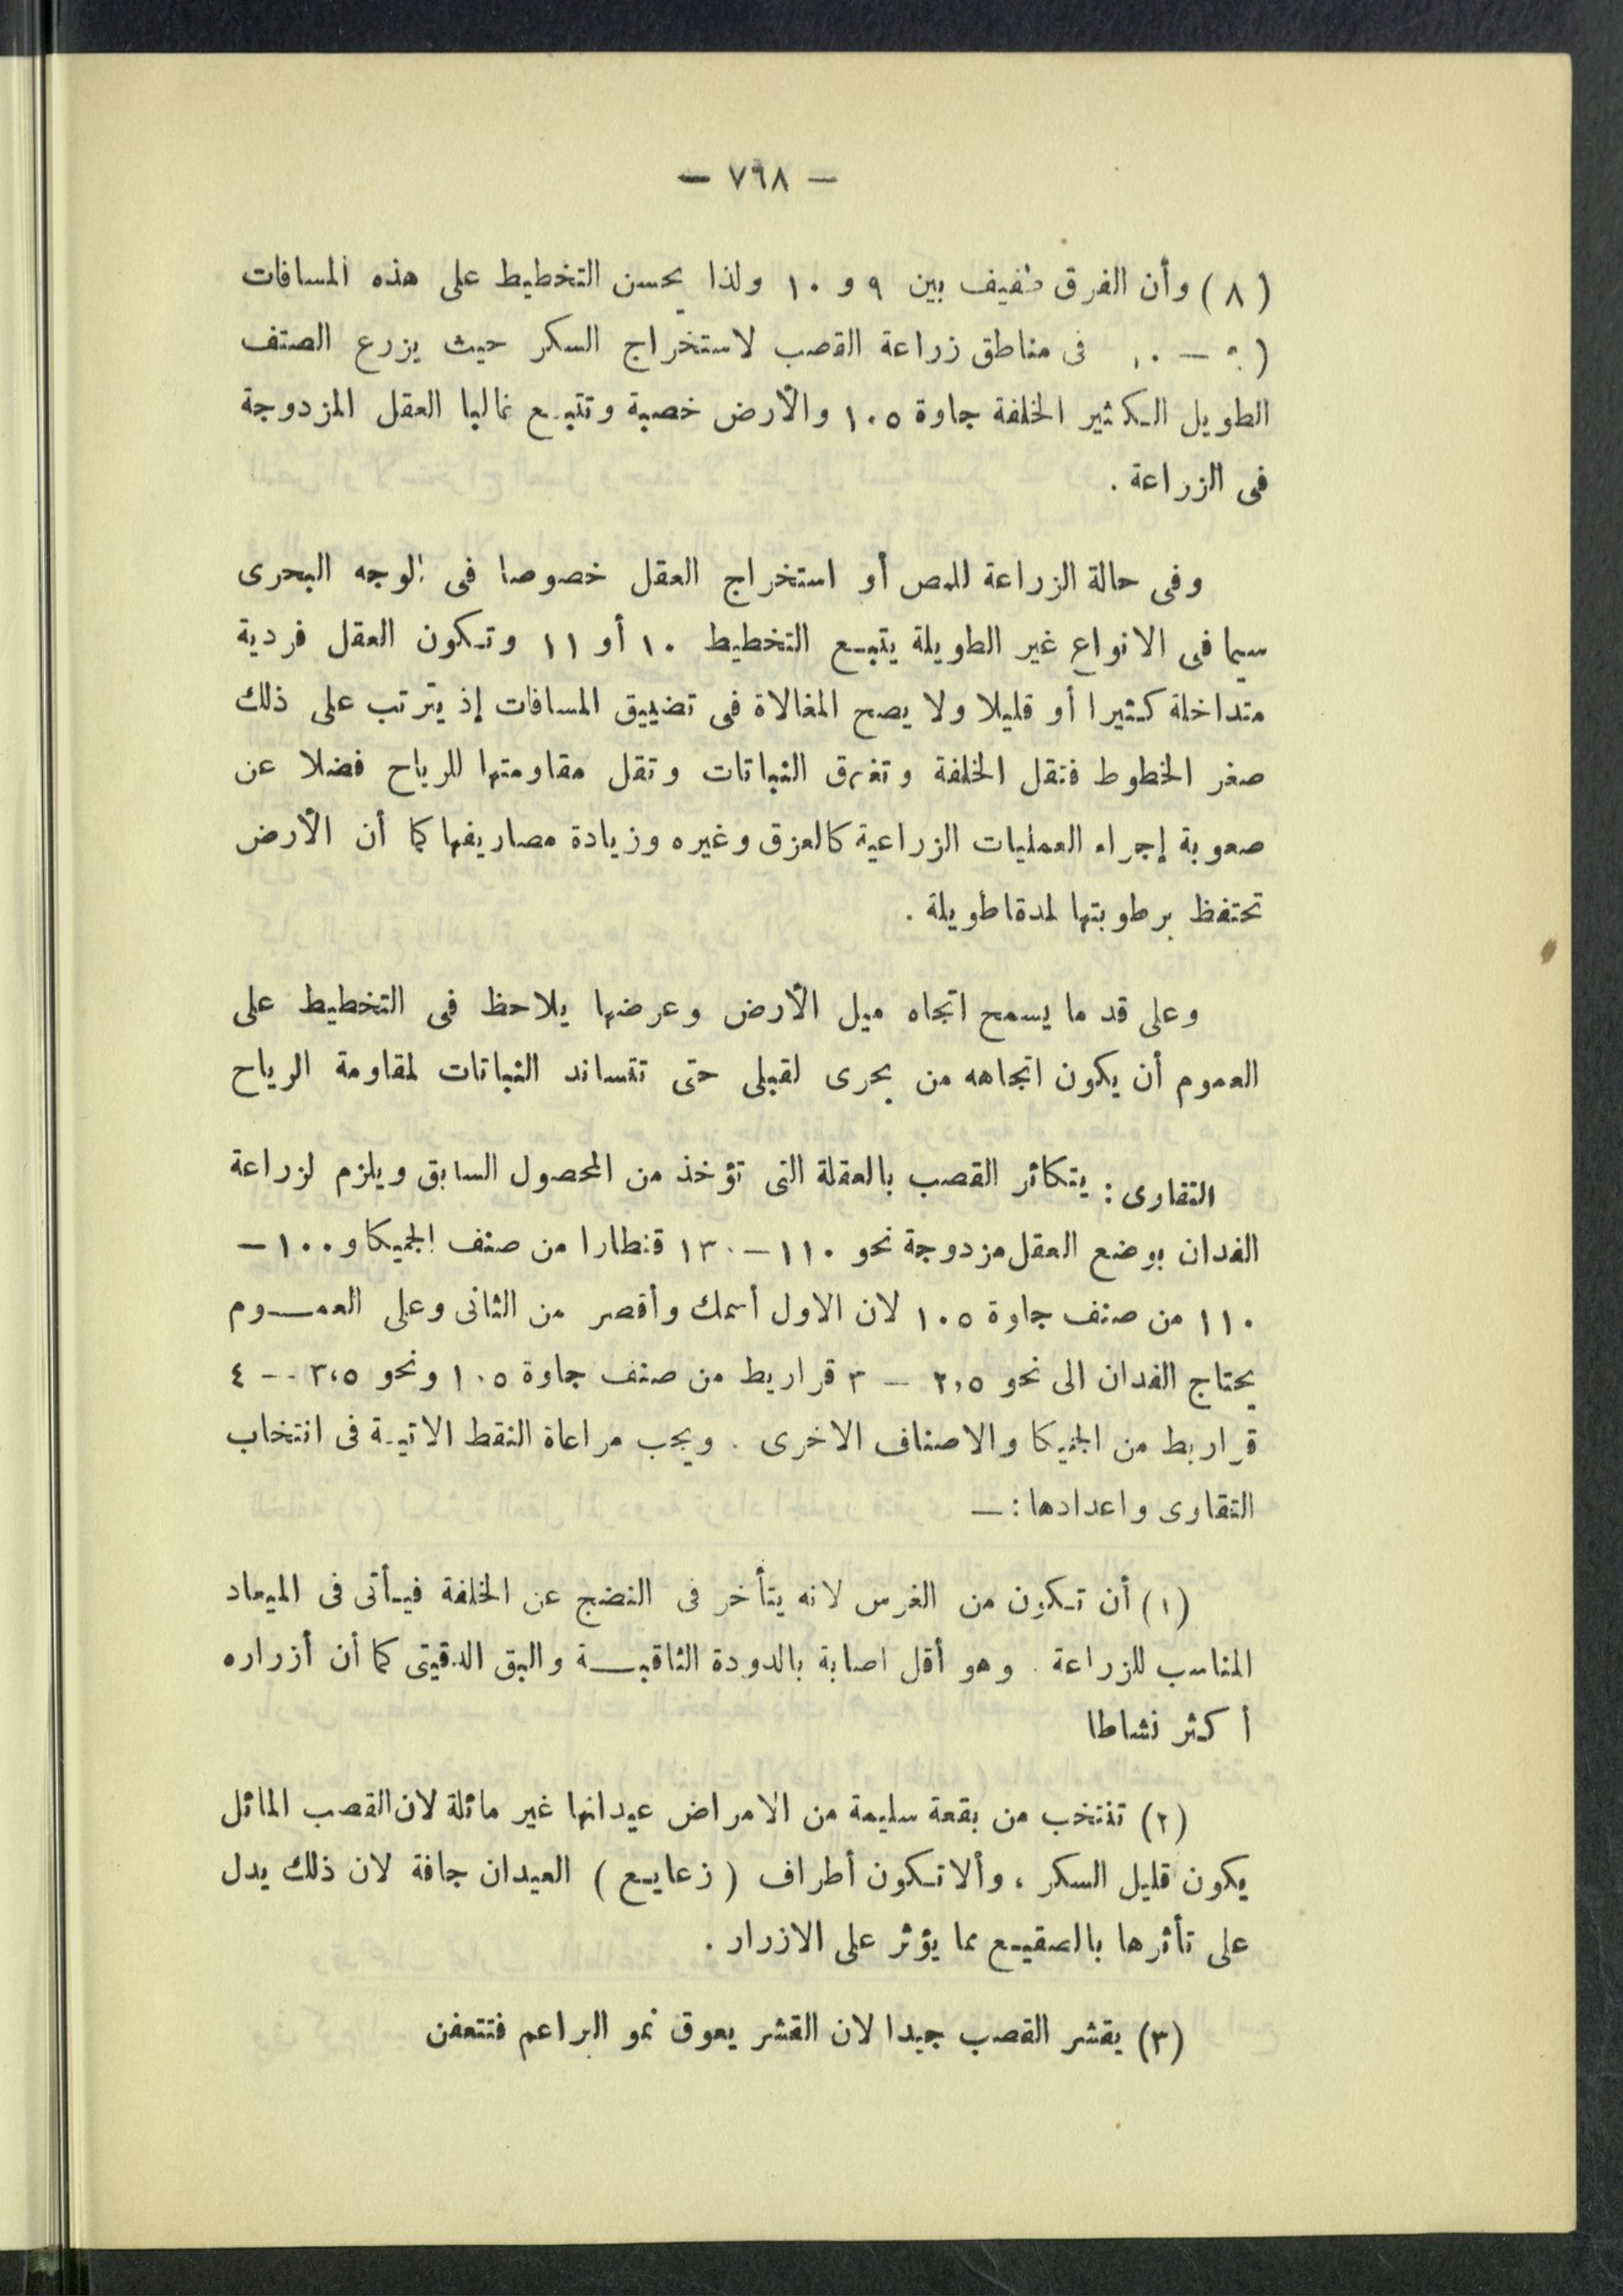 — ٧٦٨ —
(٨) وأن الفرق طفيف بين ٩ و ١٠ ولذا يحسن التخطيط على هذه المسافات
(٩ — ١٠ فى مناطق زراعة القصب لاستخراج السكر حيث يزرع الصنف
الطويل الكثير الخلفة جاوة ١٠٥ والأرض خصبة وتتبع غالبا العقل المزدوجة
فى الزراعة .
وفى حالة الزراعة للمص أو استخراج العقل خصوصا فى الوجه البحرى
سيما فى الانواع غير الطويلة يتبع التخطيط ١٠ أو ١١ وتكون العقل فردية
متداخلة كثيرا أو قليلا ولا يصح المغالاة فى تضييق المسافات إذ يترتب على ذلك
صغر الخطوط فتقل الخلفة وتغرق النباتات وتقل مقاومتها للرياح فضلا عن
صعوبة إجراء العمليات الزراعية كالعزق وغيره وزيادة مصاريفها كما أن الأرض
تحتفظ برطوبتها لمدة طويلة .
وعلى قد ما يسمح اتجاه ميل الأرض وعرضها يلاحظ فى التخطيط على
العموم أن يكون اتجاهه من بحرى لقبلى حتى تتساند النباتات لمقاومة الرياح
التقاوى : يتكاثر القصب بالعقلة التى تؤخذ من المحصول السابق ويلزم لزراعة
الفدان بوضع العقل مزدوجة نحو ١١٠ — ١٣٠ قنطارا من صنف الجميكا و ١٠٠ —
١١٠ من صنف جاوة ١٠٥ لان الاول أسمك وأقصر من الثانى وعلى العمــوم
يحتاج الفدان الى نحو ٢,٥ — ٣ قراريط من صنف جاوة ١٠٥ ونحو ٣,٥ — ٤
قراريط من الجميكا والاصناف الاخرى . ويجب مراعاة النقط الاتية فى انتخاب
التقاوى واعدادها : —
(١) أن تكون من الغرس لانه يتأخر فى النضج عن الخلفة فيأتى فى الميعاد
المناسب للزراعة . وهو أقل اصابة بالدودة الثاقبــة والبق الدقيقى كما أن أزراره
أكثر نشاطا
(٢) تنتخب من بقعة سليمة من الامراض عيدانها غير مائلة لان القصب المائل
يكون قليل السكر ، وألا تكون أطراف ( زعايع ) العيدان جافة لان ذلك يدل
على تأثرها بالصقيع مما يؤثر على الازرار .
(٣) يقشر القصب جيدا لان القشر يعوق نمو البراعم فتتعفن